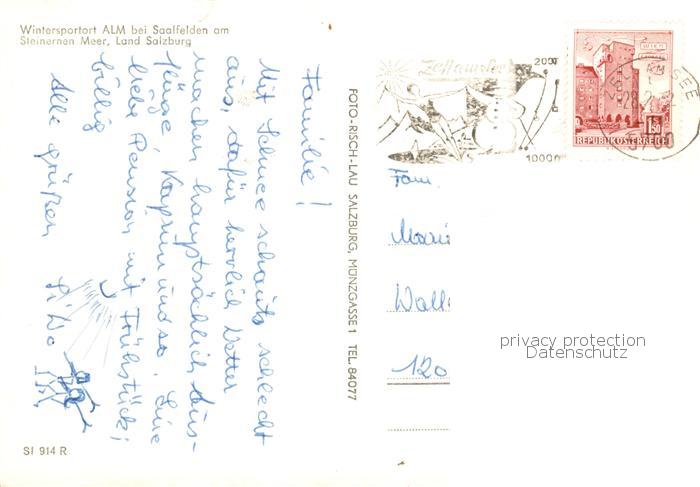 Wintersportort ALM bei Saalfelden am
Steinernen Meer, Land Salzburg
Familie!
Mit Schnee schauts schlecht
aus, dafür herrlich Wetter
machen hauptsächlich Aus-
flüge, Kaprun und so. Eine
liebe Pension mit Frühstück;
billig
Alle grüßen
SI 914 R
FOTO-RISCH-LAU SALZBURG, MÜNZGASSE 1 TEL. 84077
Zell am See
2000
1000
5700
REPUBLIK ÖSTERREICH
1.50
Fam.
120
privacy protection
Datenschutz